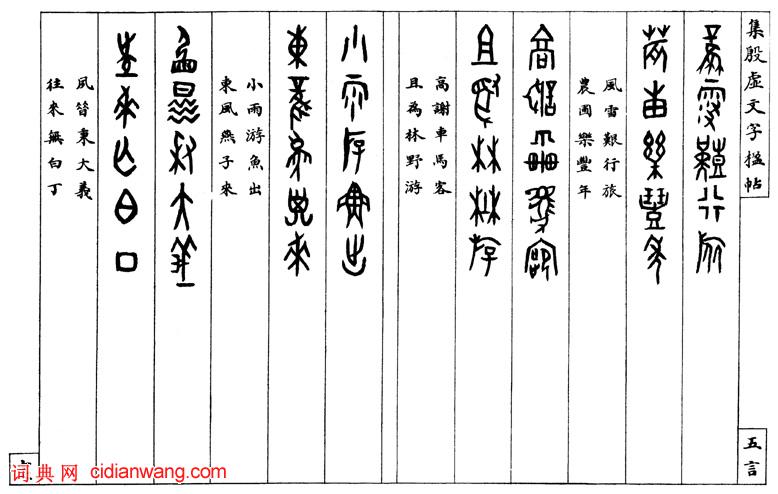 集殷虛文字楹帖
風雪艱行旅
農圃樂豐年
高謝車馬客
且為林野游
小雨游魚出
東風燕子來
夙昔秉大義
往來無白丁
五言
词典网 cidianwang.com